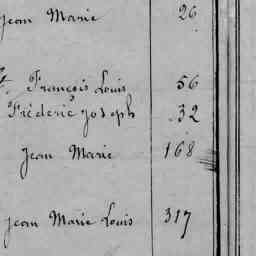 Jean Marie 26
François Louis 56
Fréderic Joseph 32
Jean Marie 168
Jean Marie Louis 317